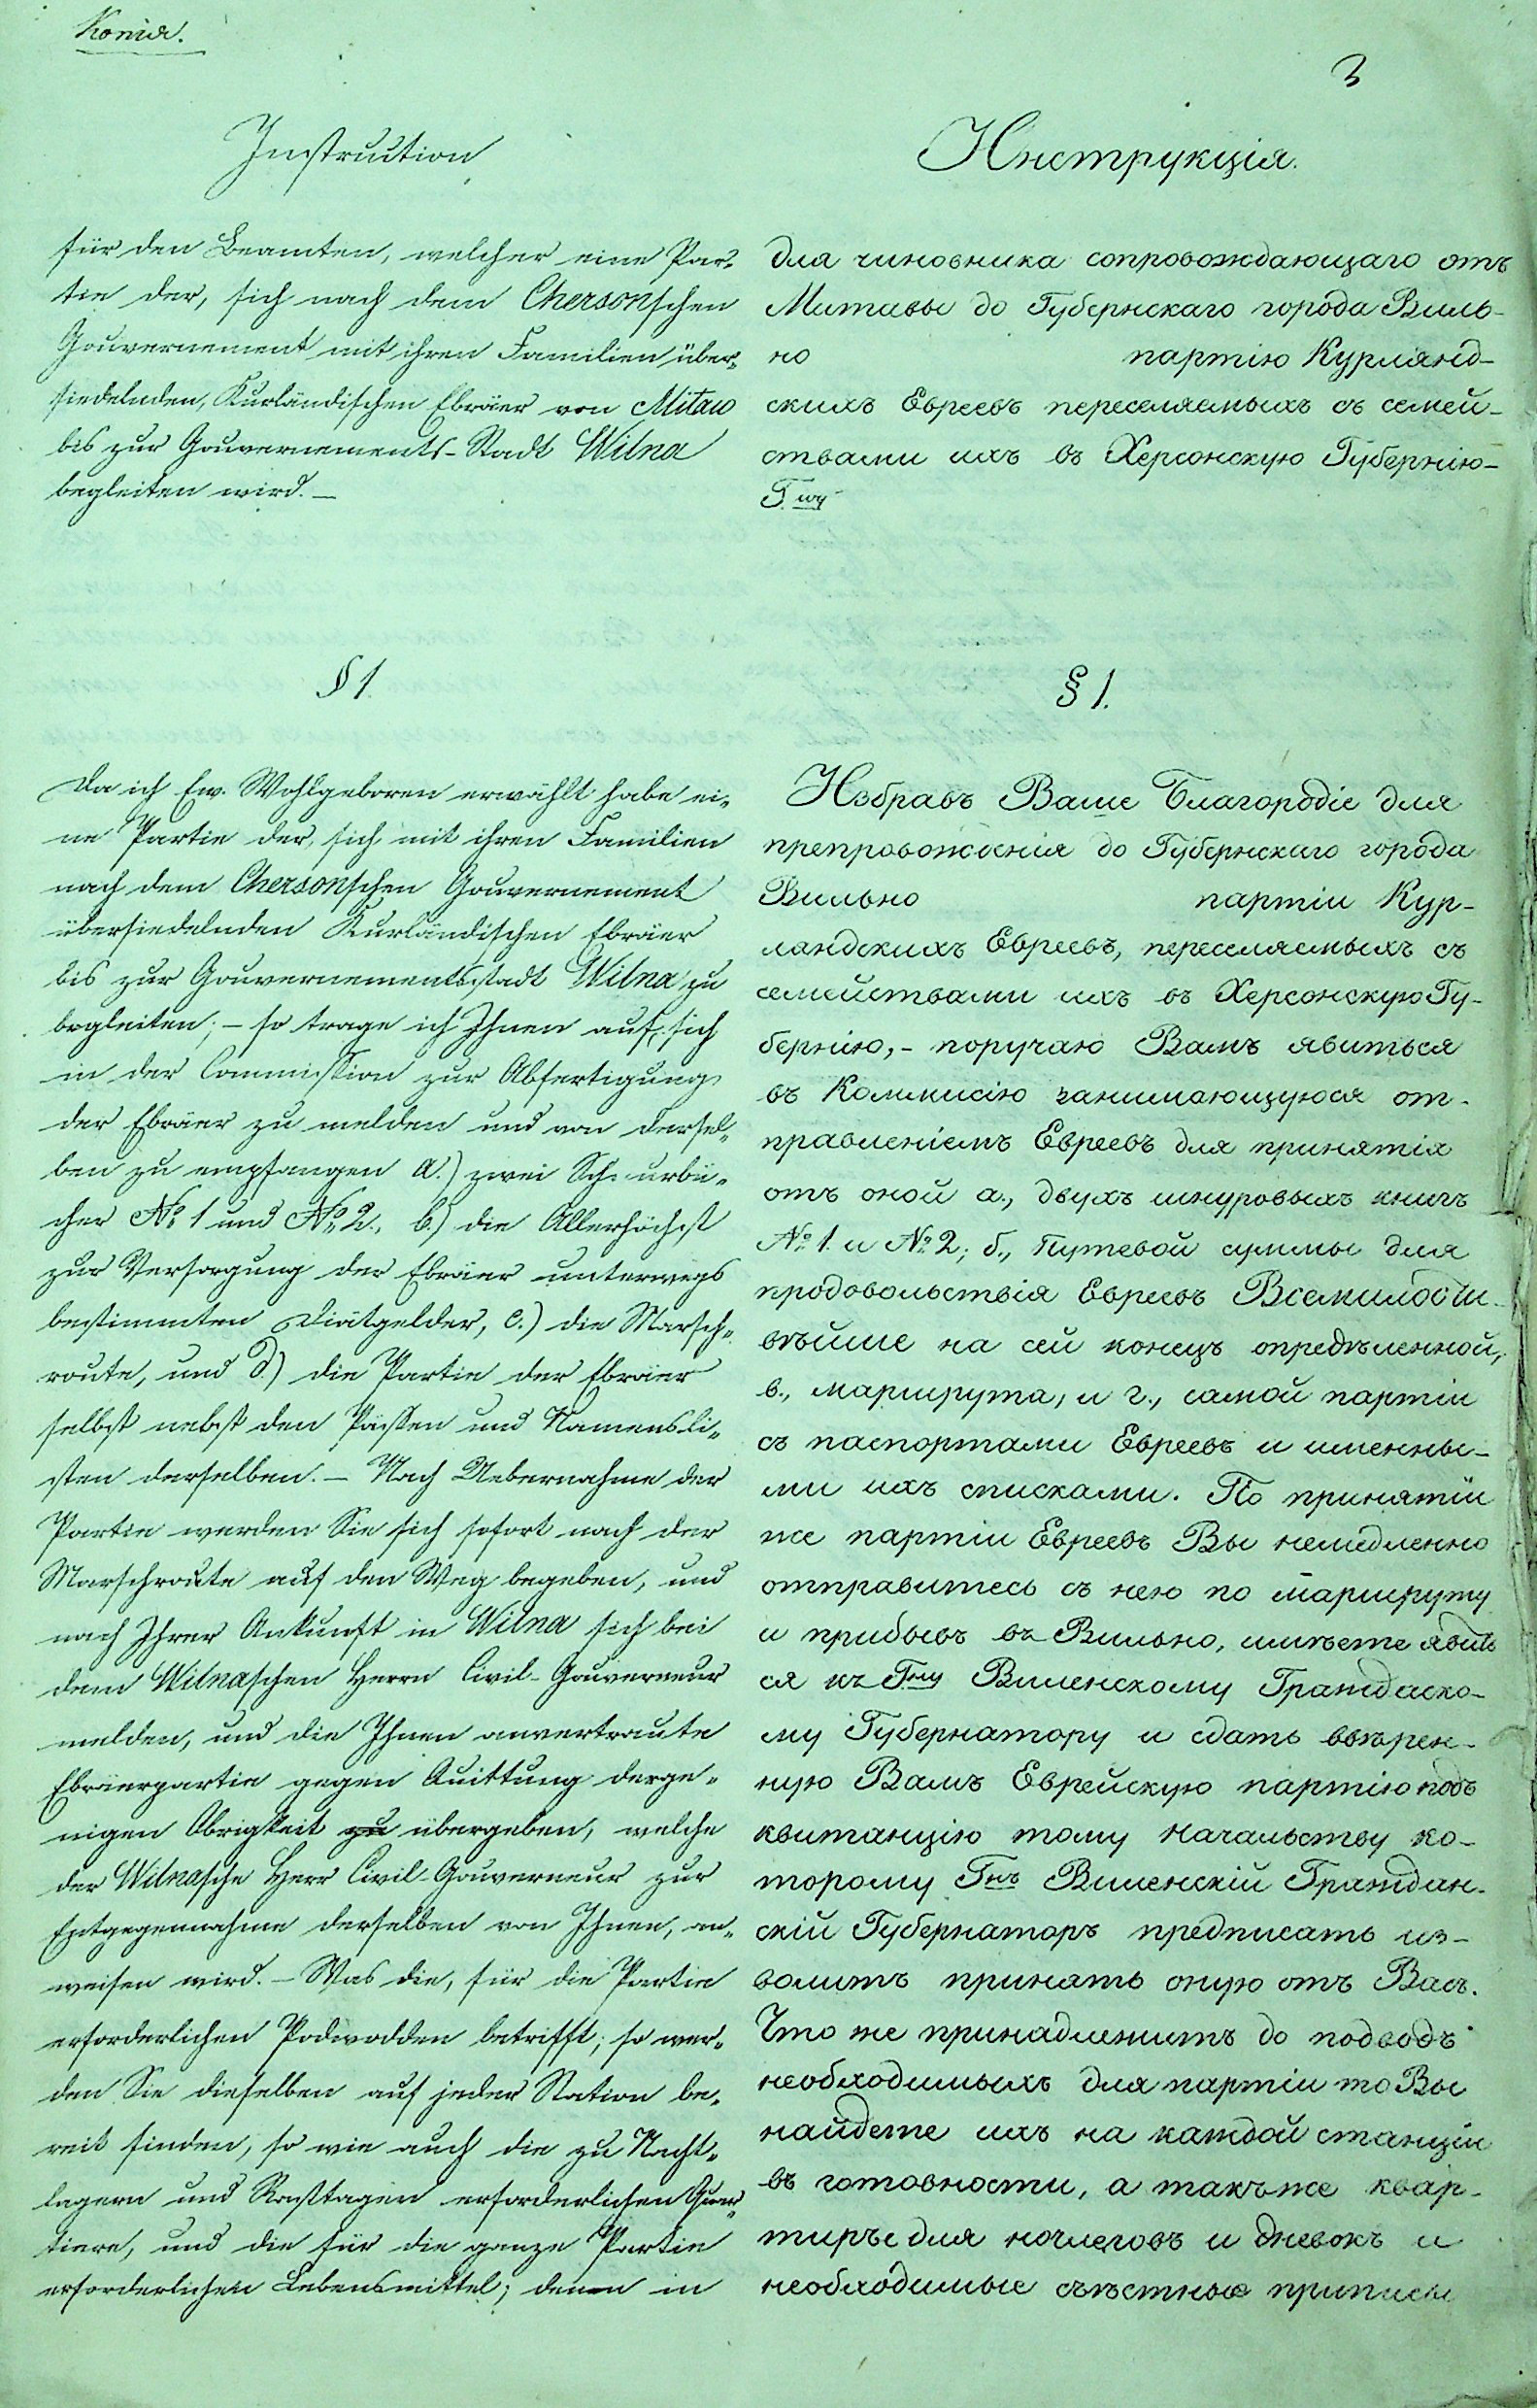 Копія.
3
Instruction
für den Beamten, welcher eine Par-
tie der, sich nach dem Chersonschen
Gouvernement mit ihren Familien über-
siedelnden, Kurländischen Ebräer von Mitau
bis zur Gouvernements-Stadt Wilna
begleiten wird. —
§ 1.
Da ich Ew. Wohlgeboren erwählt habe ei-
ne Partie der, sich mit ihren Familien
nach dem Chersonschen Gouvernement
übersiedelnden Kurländischen Ebräer
bis zur Gouvernementsstadt Wilna zu
begleiten; – so trage ich Ihnen auf, sich
in der Commission zur Abfertigung
der Ebräer zu melden und von dersel-
ben zu empfangen a.) zwei Schnurbü-
cher № 1 und № 2, b.) die Allerhöchst
zur Versorgung der Ebräer unterwegs
bestimmten Diätgelder, c.) die Marsch-
route, und d.) die Partie der Ebräer
selbst nebst den Pässen und Namensli-
sten derselben. — Nach Uebernahme der
Partie werden Sie sich sofort nach der
Marschroute auf den Weg begeben, und
nach Ihrer Ankunft in Wilna sich bei
dem Wilnaschen Herrn Civil-Gouverneur
melden, und die Ihnen anvertraute
Ebräerpartie gegen Quittung derje-
nigen Obrigkeit zu übergeben, welche
der Wilnasche Herr Civil-Gouverneur zur
Entgegennahme derselben von Ihnen, an-
weisen wird. — Was die, für die Partie
erforderlichen Podwodden betrifft; so wer-
den Sie dieselben auf jeder Station be-
reit finden, so wie auch die zu Nacht-
lagern und Rasttagen erforderlichen Quar-
tiere, und die für die ganze Partie
erforderlichen Lebensmittel; denen in
Инструкція.
для чиновника сопровождающаго отъ
Митавы до Губернскаго города Виль-
но партію Курлянд-
скихъ Евреевъ переселяемыхъ съ семей-
ствами ихъ въ Херсонскую Губернію-
Г.ну
§ 1.
Избравъ Ваше Благородіе для
препровожденія до Губернскаго города
Вильно партіи Кур-
ландскихъ Евреевъ, переселяемыхъ съ
семействами ихъ въ Херсонскую Гу-
бернію, - поручаю Вамъ явиться
въ Коммисію занимающуюся от-
правленіемъ Евреевъ для принятія
отъ оной а., двухъ шнуровыхъ книгъ
№ 1. и № 2; б., Путевой суммы для
продовольствія Евреевъ Всемилости-
вѣйше на сей конецъ опредѣленной,
в., маршрута, и г., самой партіи
съ паспортами Евреевъ и именны-
ми ихъ списками. По принятіи
же партіи Евреевъ Вы немедленно
отправитесь съ нею по маршруту
и прибывъ въ Вильно, имѣете явить
ся къ Г.ну Виленскому Граждаско-
му Губернатору и сдать ввѣрен-
ную Вамъ Еврейскую партію подъ
квитанцію тому Начальству ко-
торому Г.нъ Виленскій Граждан-
скій Губернаторъ предписать из-
волитъ принять оную отъ Васъ.
Что же принадлежитъ до подводъ
необходимыхъ для партіи то Вы
найдете ихъ на каждой станціи
въ готовности, а такъже квар-
тиръ для ночлеговъ и дневокъ и
необходимые съѣстные припасы